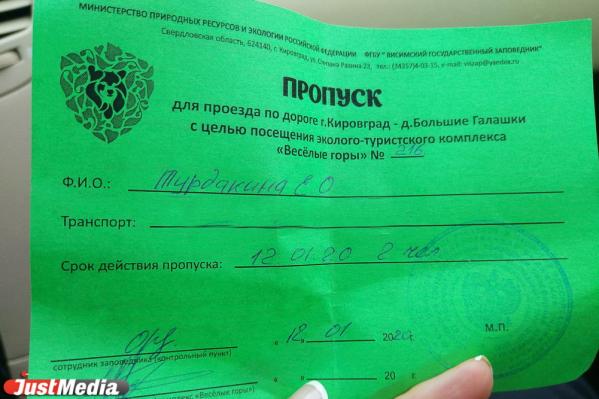 МИНИСТЕРСТВО ПРИРОДНЫХ РЕСУРСОВ И ЭКОЛОГИИ РОССИЙСКОЙ ФЕДЕРАЦИИ ФГБУ "ВИСИМСКИЙ ГОСУДАРСТВЕННЫЙ ЗАПОВЕДНИК"
Свердловская область, 624140, г. Кировград, ул. Степана Разина-23, тел.: (34357)4-03-15, e-mail: viszap@yandex.ru
ПРОПУСК
для проезда по дороге г.Кировград - д.Большие Галашки
с целью посещения эколого-туристского комплекса
«Весёлые горы» № 216
Ф.И.О.: Турдакина Е.О.
Транспорт:
Срок действия пропуска: 12.01.20 2 час
« 12 » 01 2020г. М.П.
сотрудник заповедника (контрольный пункт)
« » 20 г.
комплекс «Весёлые горы»)
JustMedia